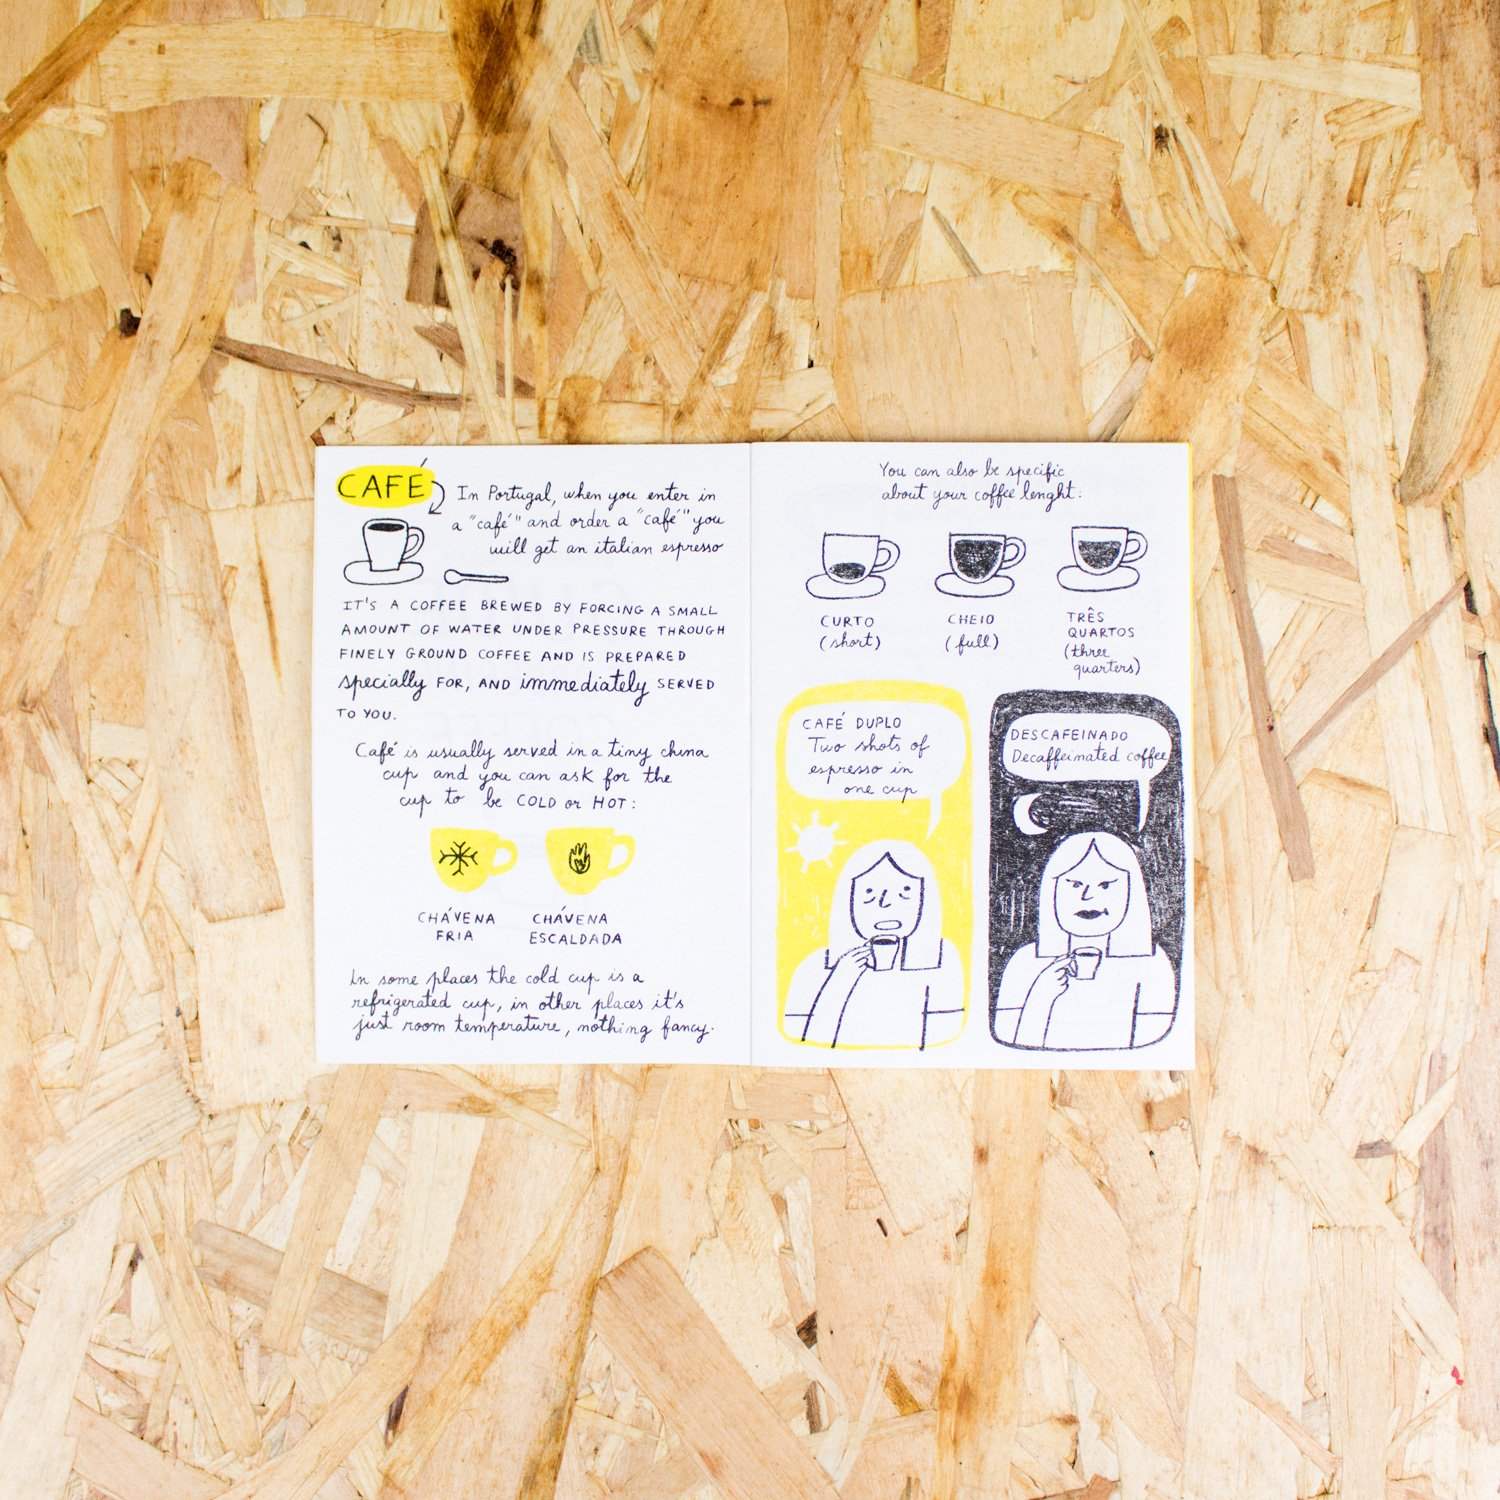 CAFÉ
In Portugal, when you enter in
a "café" and order a "café" you
will get an italian espresso
IT'S A COFFEE BREWED BY FORCING A SMALL
AMOUNT OF WATER UNDER PRESSURE THROUGH
FINELY GROUND COFFEE AND IS PREPARED
specially FOR, AND immediately SERVED
TO YOU.
Café is usually served in a tiny china
cup and you can ask for the
cup to be COLD or HOT:
CHÁVENA
FRIA
CHÁVENA
ESCALDADA
In some places the cold cup is a
refrigerated cup, in other places it's
just room temperature, nothing fancy.
You can also be specific
about your coffee lenght:
CURTO
(short)
CHEIO
(full)
TRÊS
QUARTOS
(three
quarters)
CAFÉ DUPLO
Two shots of
espresso in
one cup
DESCAFEINADO
Decaffeinated coffee